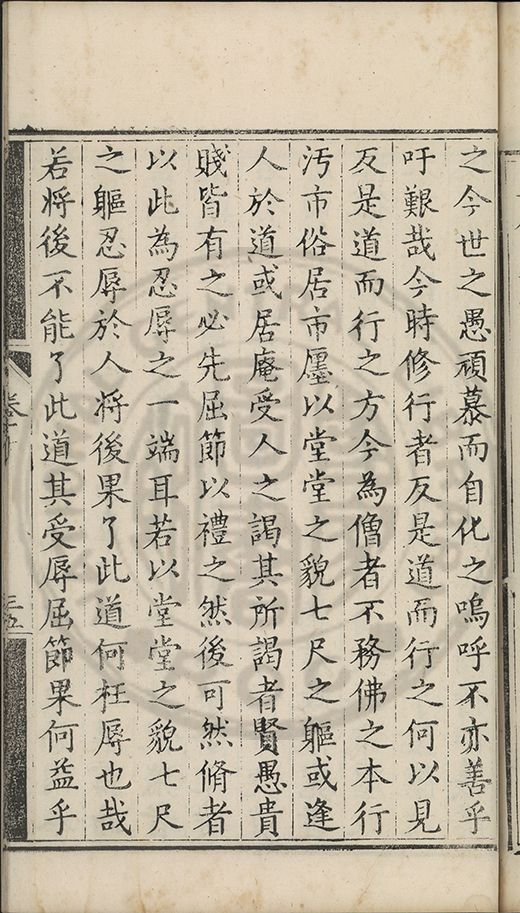 之今世之愚頑慕而自化之嗚呼不亦善乎
吁艱哉今時修行者反是道而行之何以見
反是道而行之方今為僧者不務佛之本行
汚市俗居市廛以堂堂之貌七尺之軀或逢
人於道或居庵受人之謁其所謁者賢愚貴
賤皆有之必先屈節以禮之然後可然脩者
以此為忍辱之一端耳若以堂堂之貌七尺
之軀忍辱於人將後果了此道何枉辱也哉
若將後不能了此道其受辱屈節果何益乎
卷十
三五